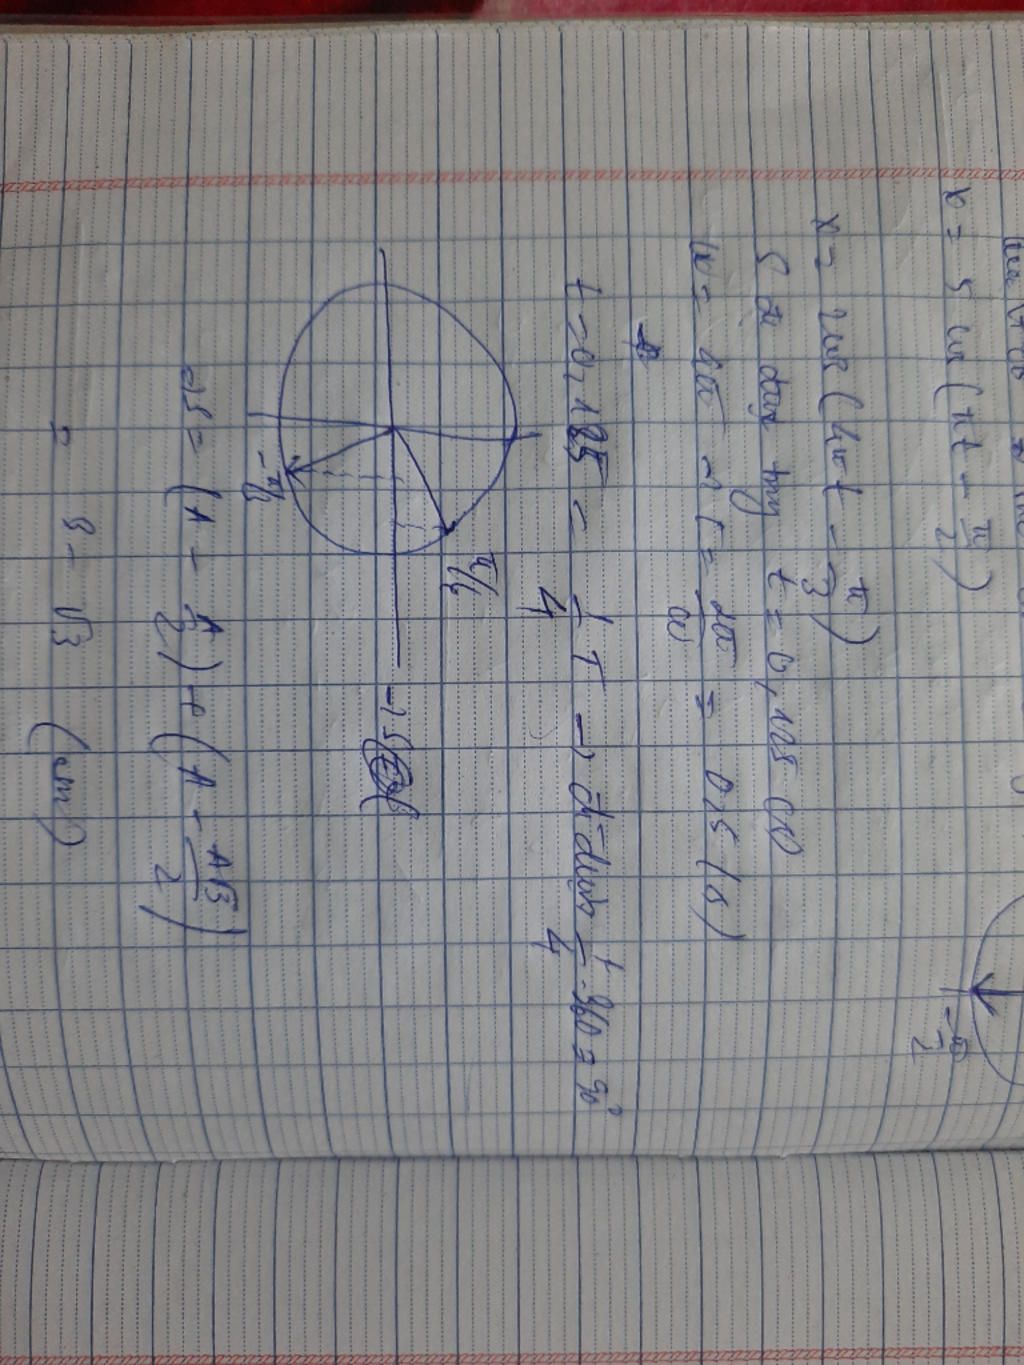 x = 5 cos (πt - π/2)
-π/2
x = 2cos (4πt - π/3)
S đi được trong t = 0,125 (s)
ω = 4π → T = 2π/ω = 0,5 (s)
t = 0,125 = 1/4 T → đi được 1/4 . 360 = 90°
π/6
→ S
-π/3
→ S = (A - A/2) + (A - A√3/2)
= 3 - √3 (cm)